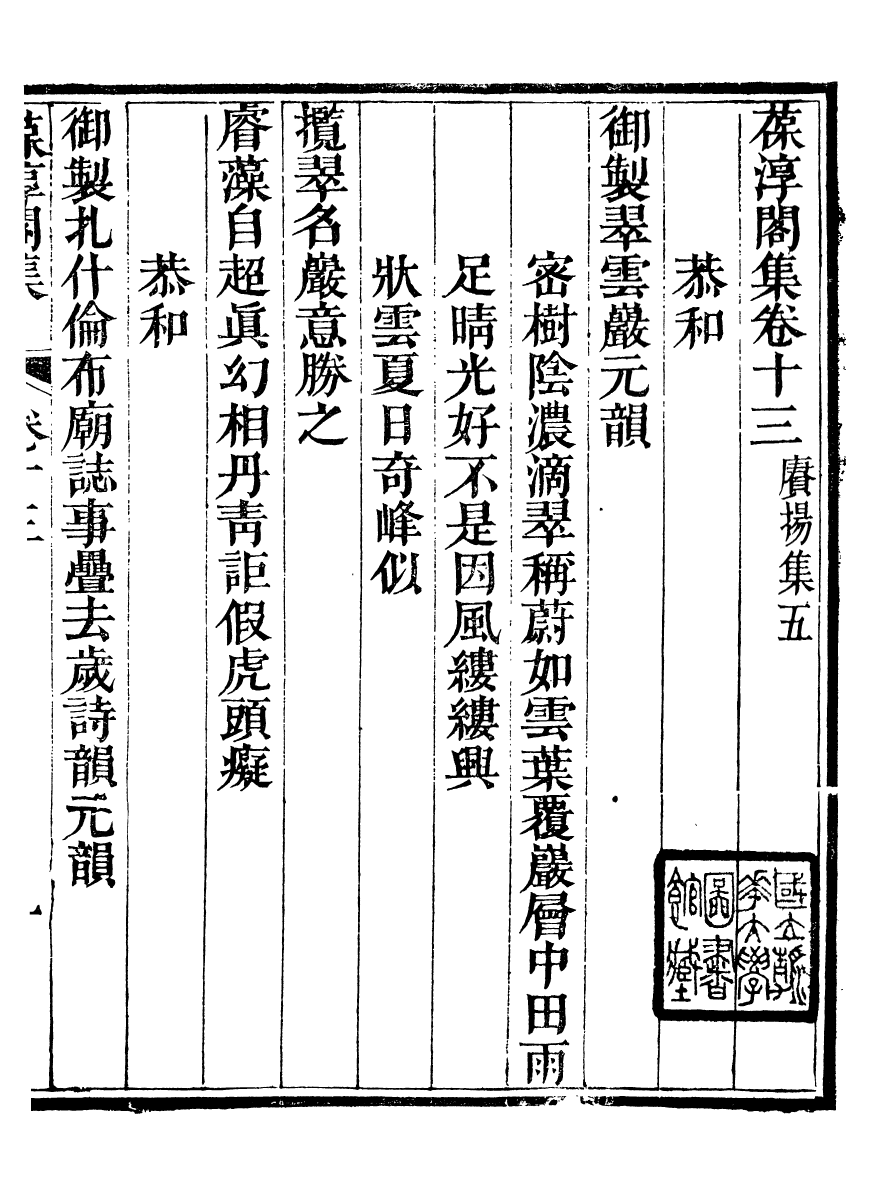 葆淳閣集卷十三　賡揚集五
恭和
御製翠雲巖元韻
密樹陰濃滴翠稱蔚如雲葉覆巖層中田雨
足晴光好不是因風縷縷興
狀雲夏日奇峰似
攬翠名巖意勝之
睿藻自超眞幻相丹靑詎假虎頭癡
恭和
御製扎什倫布廟誌事疊去歲詩韻元韻
葆淳閣集　卷十三　一
國立清華大學圖書館藏